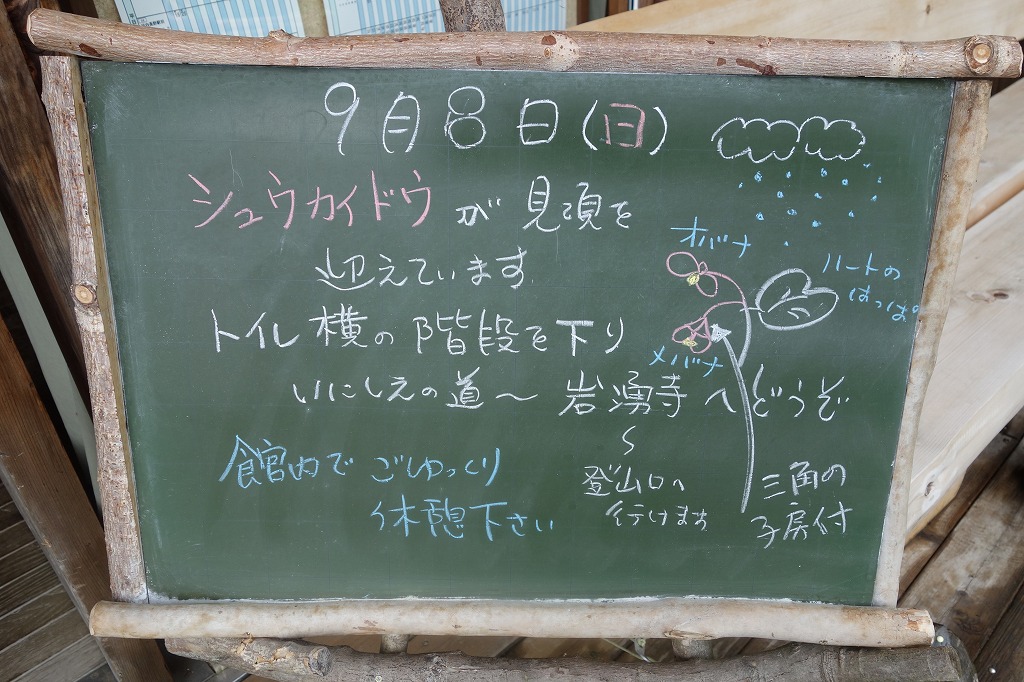 9月8日(日)
シュウカイドウが見頃を
迎えています
トイレ横の階段を下り
いにしえの道〜岩湧寺へどうぞ
〜
登山口へ
行けます
館内でごゆっくり
休憩下さい
オバナ
ハートの
はっぱ
メバナ
三角の
子房付